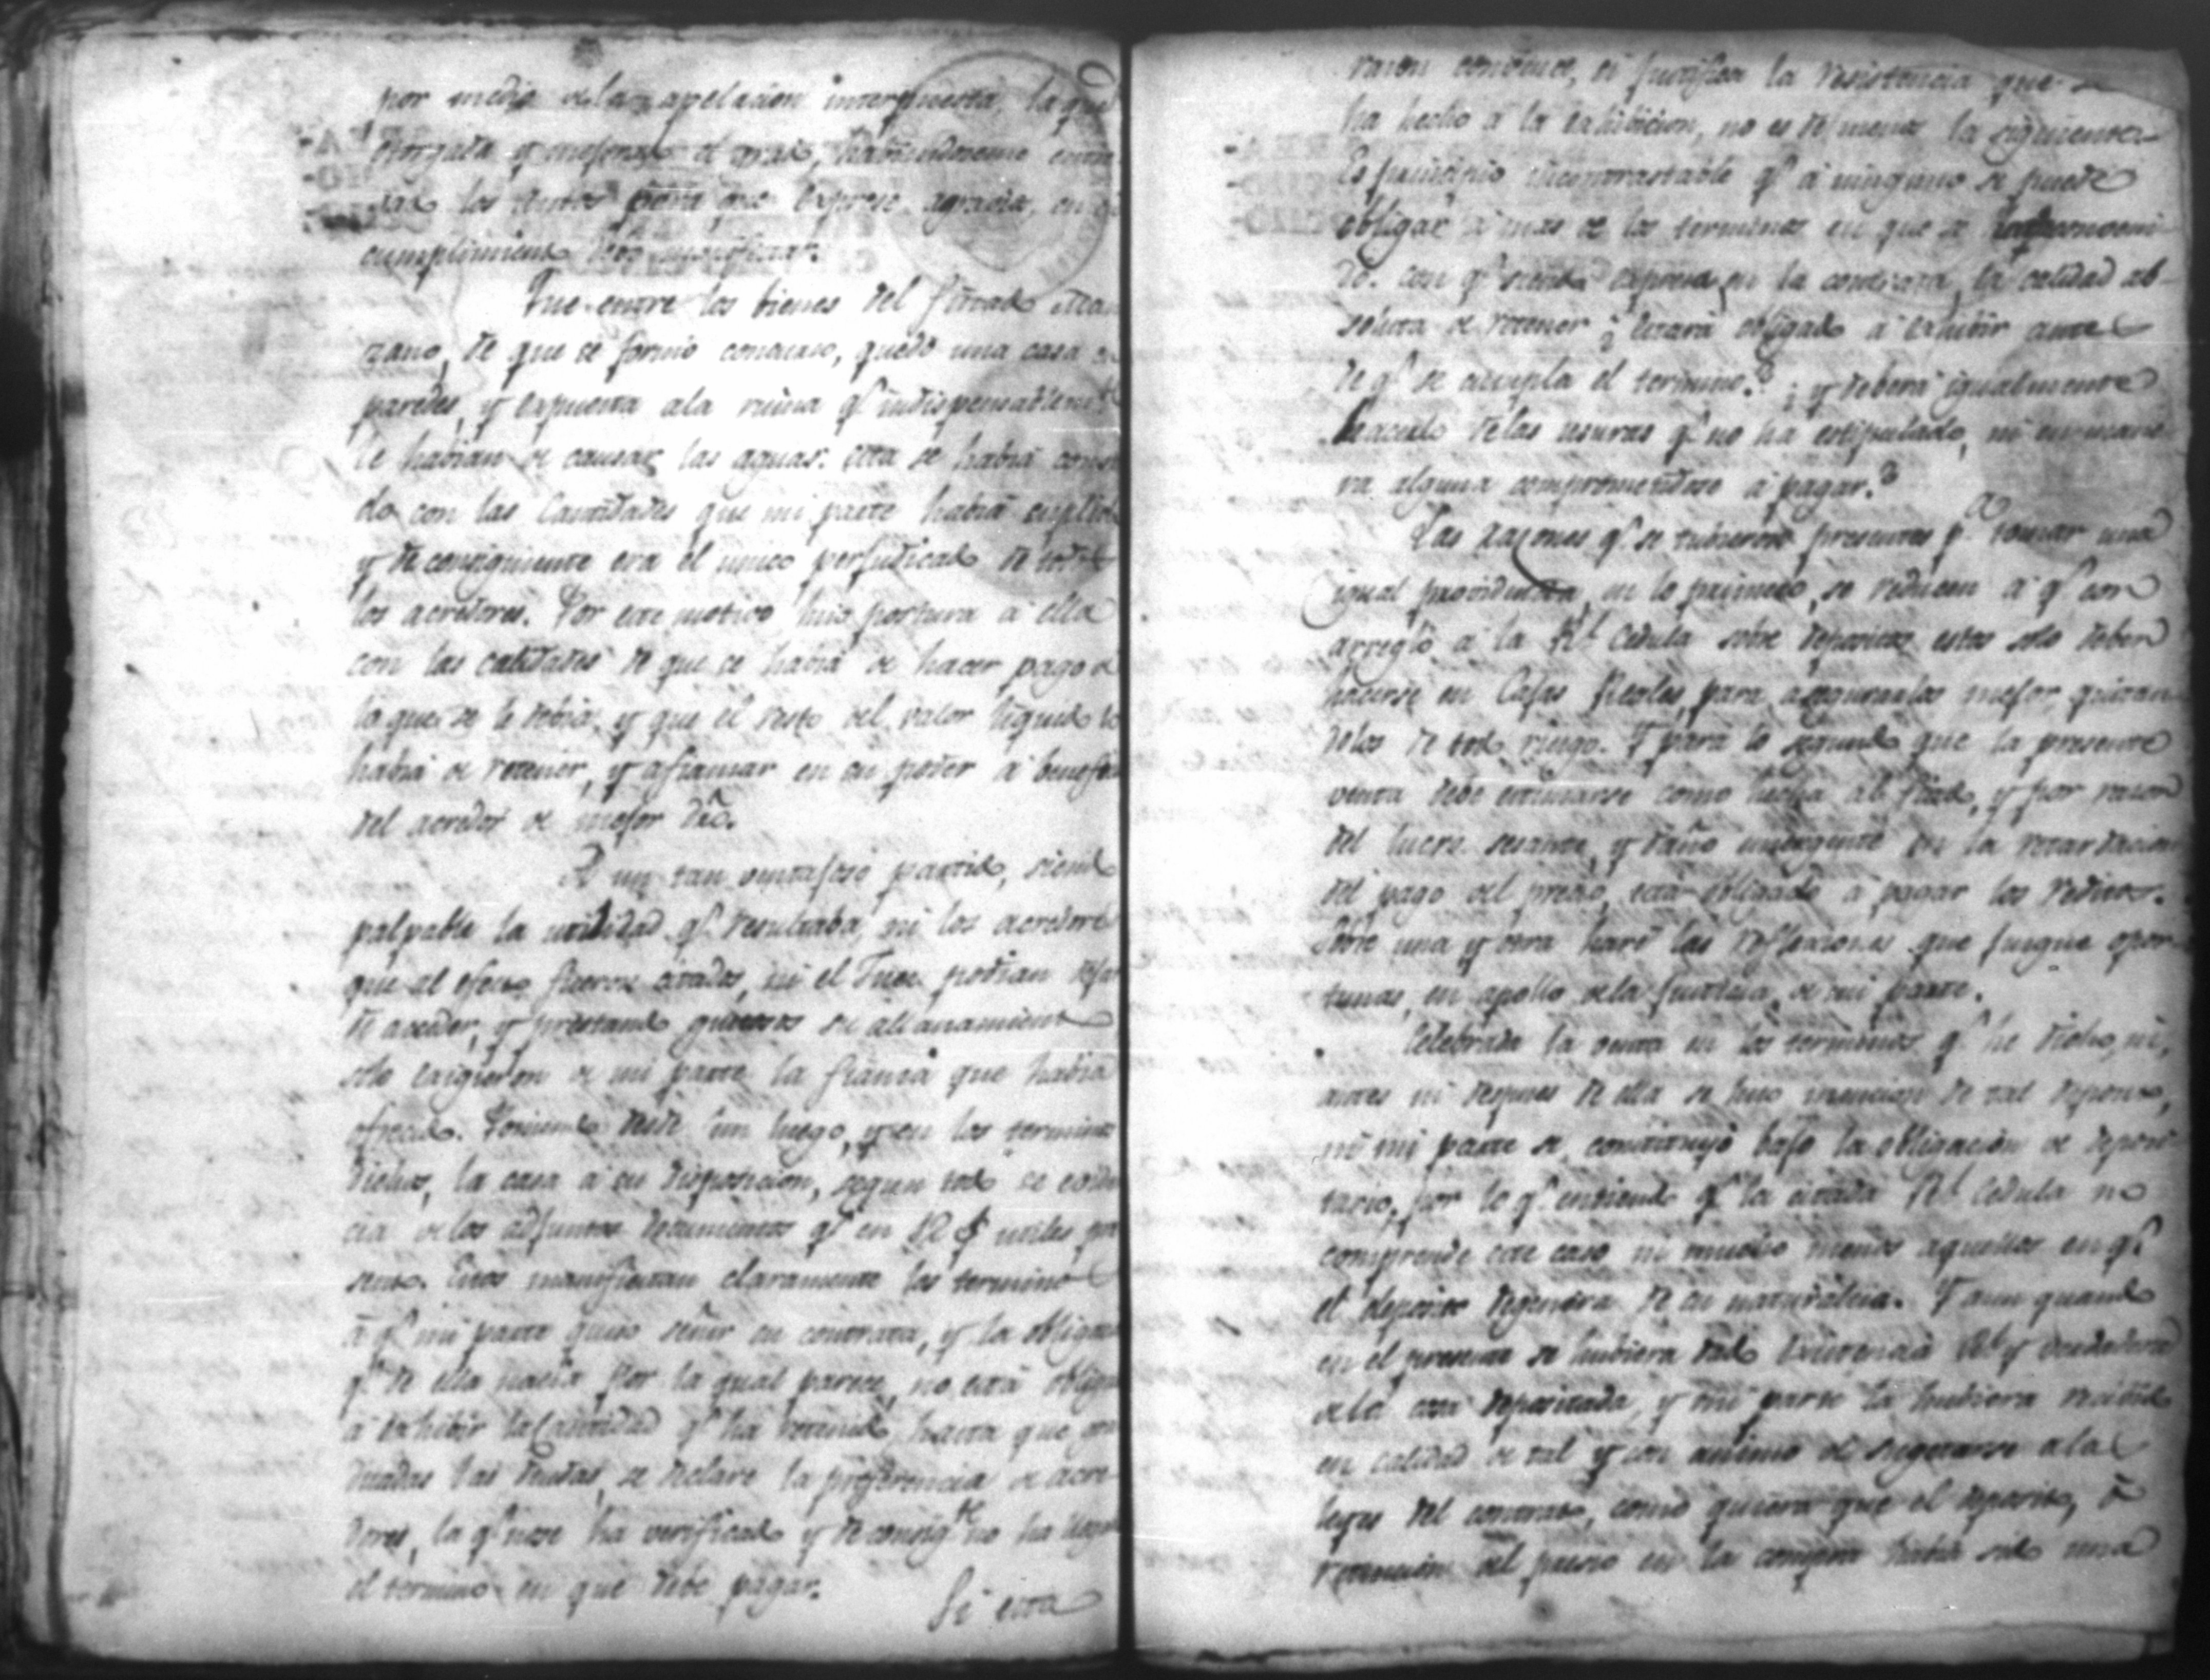 por medio dela apelacion interpuesta, la que
otorgada
los Autos para que exprese agravios, en
cumplimiento debo manifestar.
Que entre los bienes del finado Man
zano, de que se formó concurso, quedó una casa
paredes, y expuesta ala ruina q.e indispensablem.te
le habian de causar las aguas. esta se habia
do con las Cantidades que mi parte habia suplido
y de consiguiente era el unico perjudicado de
los acredores. Por este motivo hizo postura á ella
con las calidades de que se habia de hacer pago de
lo que se le debia, y que el resto del valor liquido lo
habia de retener, y afianzar en su poder á
del acredor de mejor dro.
A un tan ventajoso partido, siendo
palpable la utilidad q.e resultaba, ni los acredores
que al efecto fueron citados, ni el Juez podian
de acceder, y prestando gustosos su allanamiento
solo exigieron de mi parte la fianza que habia
ofrecido. Poniendo desde luego, y en los terminos
dichos, la casa á su disposicion, segun todo se
cia delos adjuntos documentos q.e en 12 f utiles
sento. Estos manifiestan claramente los terminos
á q.e mi parte quiso señir su contrata, y la
q.e de ella nacia por la qual parece, no está
á exhibir la Cantidad q.e ha retenido, hasta que gra
duadas las deudas, se declare la preferencia de acre
dores, la q.e no se ha verificado y de consig.te no ha
el termino en que debe pagar.
Si esta
razon convence, si justifica la resistencia que se
ha hecho á la exhibicion, no es de menos la siguiente.
Es principio incontrastable q.e á ninguno se puede
obligar á mas de los terminos en que se
do. con q.e siendo expresa en la contrata, la calidad ab
soluta de retener ¿ estará obligado á exhibir antes
de q.e se cumpla el termino? ¿ y deberá igualmente
hacerlo delas usuras q.e no ha estipulado, ni en mane
ra alguna comprometidose á pagar?
Las razones q.e se tubieron presentes p.a tomar una
igual providencia, en lo primero, se reducen a q.e con
arreglo á la R.l Cedula sobre depositos estos solo deben
hacerse en Cajas Reales, para asegurarlos mejor quitan
dolos de todo riesgo. Y para lo segundo que la presente
venta debe estimarse como hecha al fiado, y por razon
del lucro sesante, y daño emergente en la retardacion
del pago del precio, está obligado á pagar los reditos.
Sobre una y otra haré las reflexiones que jusgue opor
tunas, en apollo dela justicia de mi parte.
Celebrada la venta en los terminos q.e he dicho, ni
antes ni despues de ella se hizo mencion de tal deposito,
ni mi parte se constituyó bajo la obligacion de deposi
tario, por lo q.e entiendo q.e la citada R.l Cedula no
comprende este caso ni mucho menos aquellos en q.e
el deposito degenera de su naturaleza. Y aun quando
en el presente se hubiera dado existencia R.l y verdadera
dela cosa depositada, y mi parte la hubiera recibido
en calidad de tal y con animo de sugetarse ala
leyes del contrato, como quiera que el deposito, ó
retencion del precio en la compra habia sido una